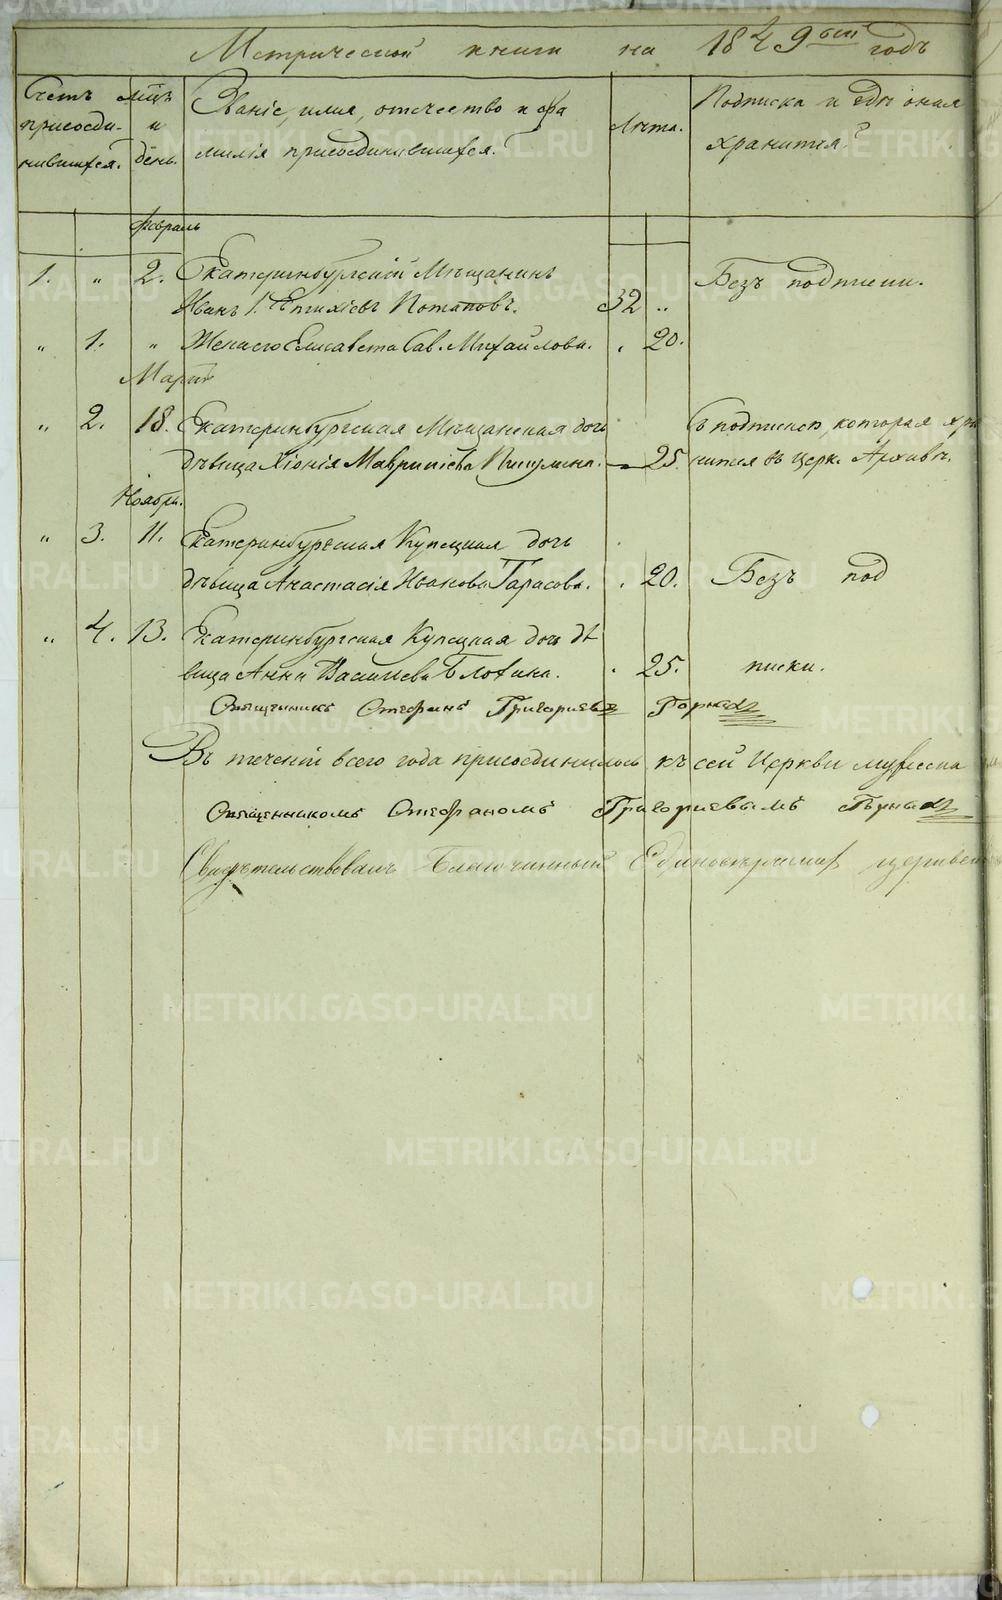 Метрической книги на 1849ый годъ
Счетъ присоединившихся.
м͞цъ и день.
Званіе, имя, отчество и фамилія присоединившагося.
Лѣта.
Подписка и гдѣ оная хранится?
Февраль
1. " 2. Екатеринбургскій Мѣщанинъ
Иванъ Евтихіевъ Потаповъ. 32 " Безъ подписки.
" 1. " Жена его Елисавета Сав. Михайлова. . 20.
Мартъ
" 2. 18. Екатеринбургская Мѣщанская дочь
дѣвица Хіонія Маврикіева Пигулина. — 25. Съ подпискою, которая хра
нится въ церк. Архивѣ.
Ноябрь.
" 3. 11. Екатеринбургская Купецкая дочь
дѣвица Анастасія Иванова Тарасова. . 20. Безъ под
" 4. 13. Екатеринбургская Купецкая дочь дѣ
вица Анна Васильева Блохина. . 25. писки.
Священникъ Стефанъ Григорьевъ
Въ теченіи всего года присоединилось къ сей Церкви мужеска
Священникомъ Стефаномъ Григориевымъ
Свидѣтельствовалъ Благочинный Единовѣрческихъ
METRIKI.GASO-URAL.RU